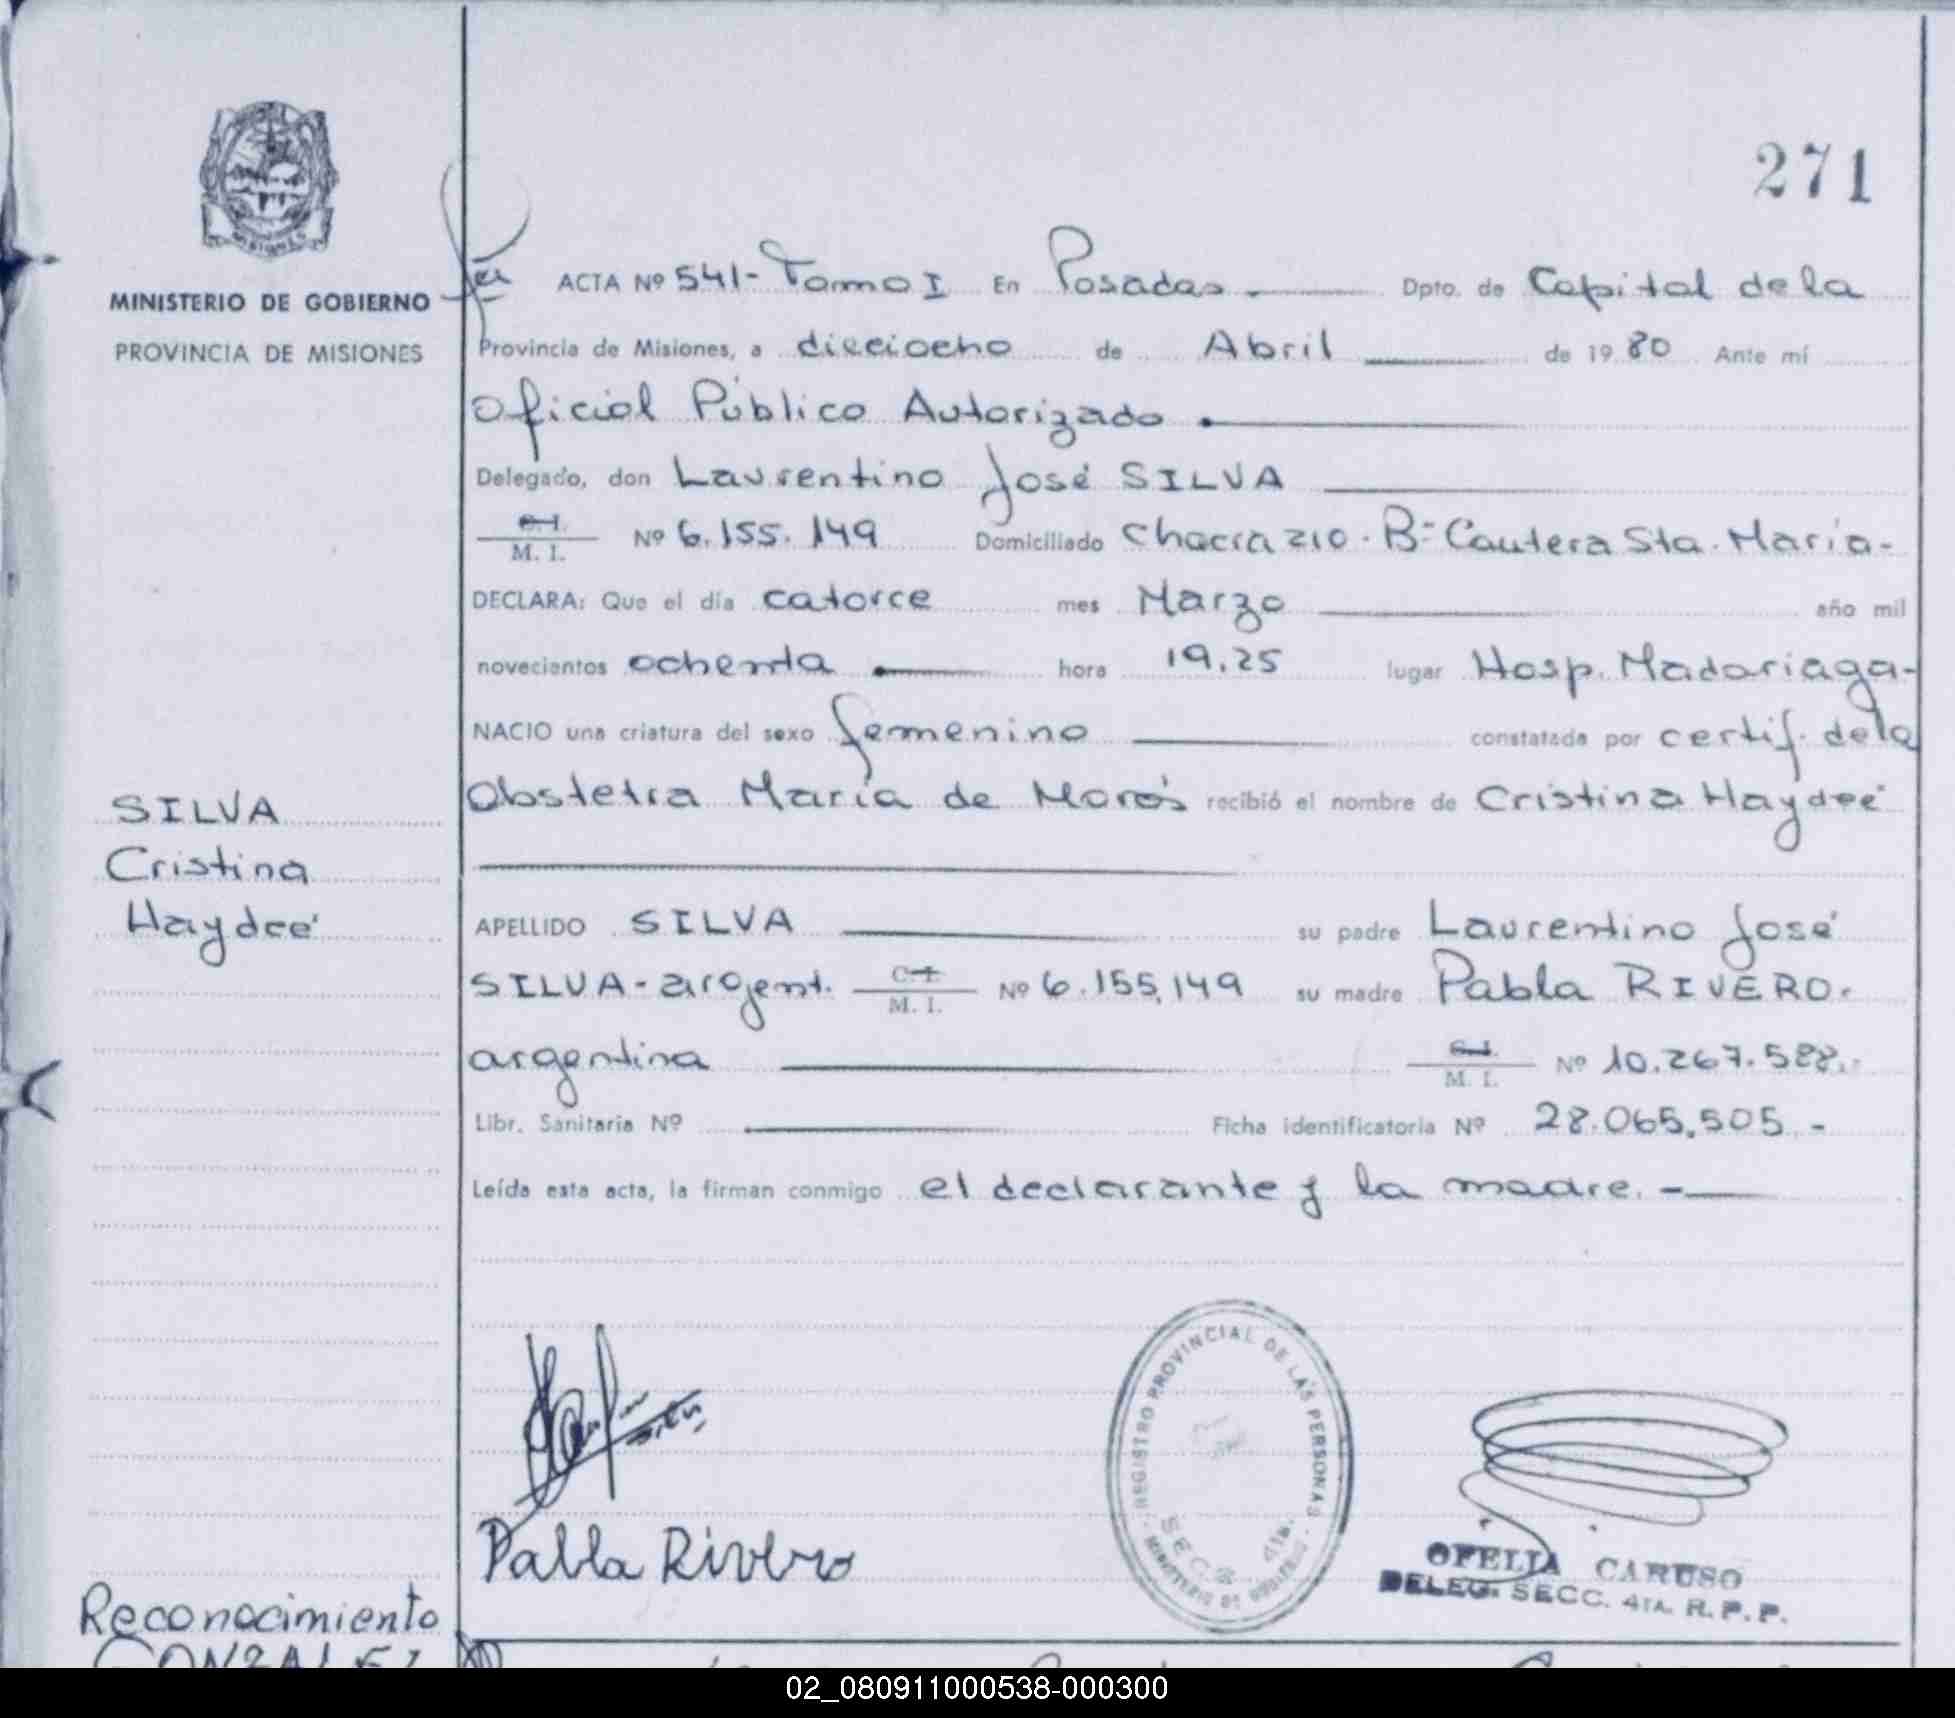 271
MISIONES
MINISTERIO DE GOBIERNO
PROVINCIA DE MISIONES
ACTA Nº 541- Tomo I En Posadas. Dpto. de Capital de la
Provincia de Misiones, a dieciocho de Abril de 1980 Ante mí
Oficial Público Autorizado
Delegado, don Laurentino José SILVA
C.I.
M. I. Nº 6.155.149 Domiciliado Chacra 210. Bº Cantera Sta. María-
DECLARA: Que el día catorce mes Marzo año mil
novecientos ochenta hora 19.25 lugar Hosp. Madariaga-
NACIO una criatura del sexo femenino constatada por certif. de la
Obstetra María de recibió el nombre de Cristina Haydeé
SILVA
Cristina
Haydeé
APELLIDO SILVA su padre Laurentino José
SILVA-argent. C.I.
M. I. Nº 6.155,149 su madre Pabla RIVERO.
argentina C.I.
M. I. Nº 10.267.588.-
Libr. Sanitaria Nº Ficha identificatoria Nº 28.065,505.-
Leída esta acta, la firman conmigo el declarante y la madre.-
Pabla Rivero
REGISTRO PROVINCIAL DE LAS PERSONAS
MINISTERIO DE GOBIERNO
SECC. 4ta.
OFELIA CARUSO
DELEG. SECC. 4TA. R. P. P.
Reconocimiento
GONZALEZ
02_080911000538-000300